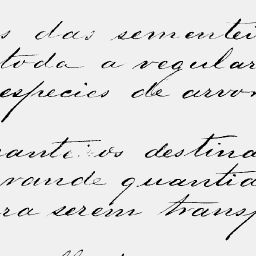 s das sementei
toda a regular
especies de arvor
anteiros destina
rande quantia
ra serem transp